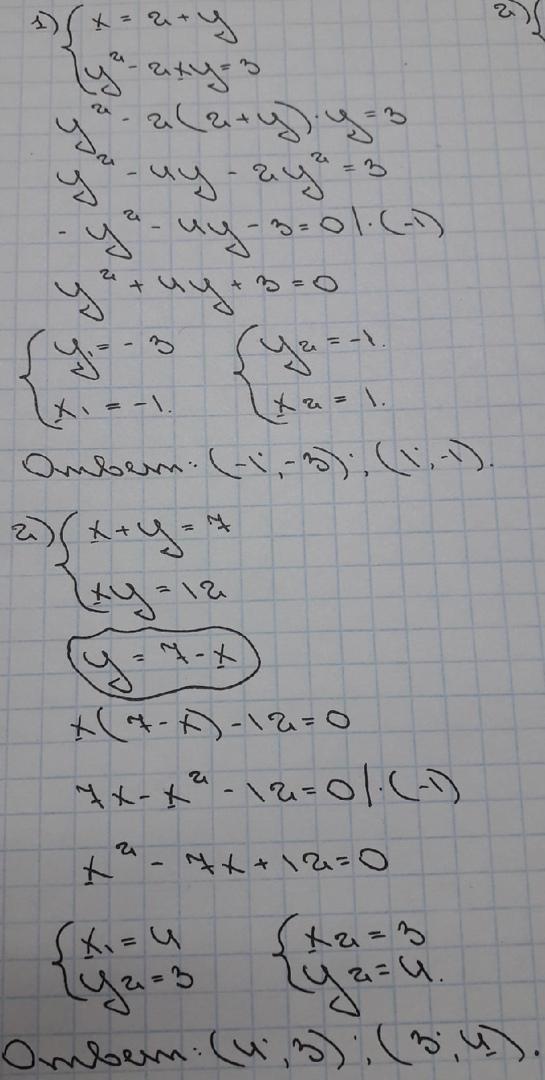 1) { x = 2 + y
y² - 2xy = 3
2) {
y² - 2(2 + y) · y = 3
y² - 4y - 2y² = 3
- y² - 4y - 3 = 0 | · (-1)
y² + 4y + 3 = 0
{ y₁ = - 3 { y₂ = -1.
x₁ = -1. x₂ = 1.
Ответ: (-1; -3); (1; -1).
2) { x + y = 7
xy = 12
y = 7 - x
x(7 - x) - 12 = 0
7x - x² - 12 = 0 | · (-1)
x² - 7x + 12 = 0
{ x₁ = 4 { x₂ = 3
y₂ = 3 y₂ = 4.
Ответ: (4; 3); (3; 4).